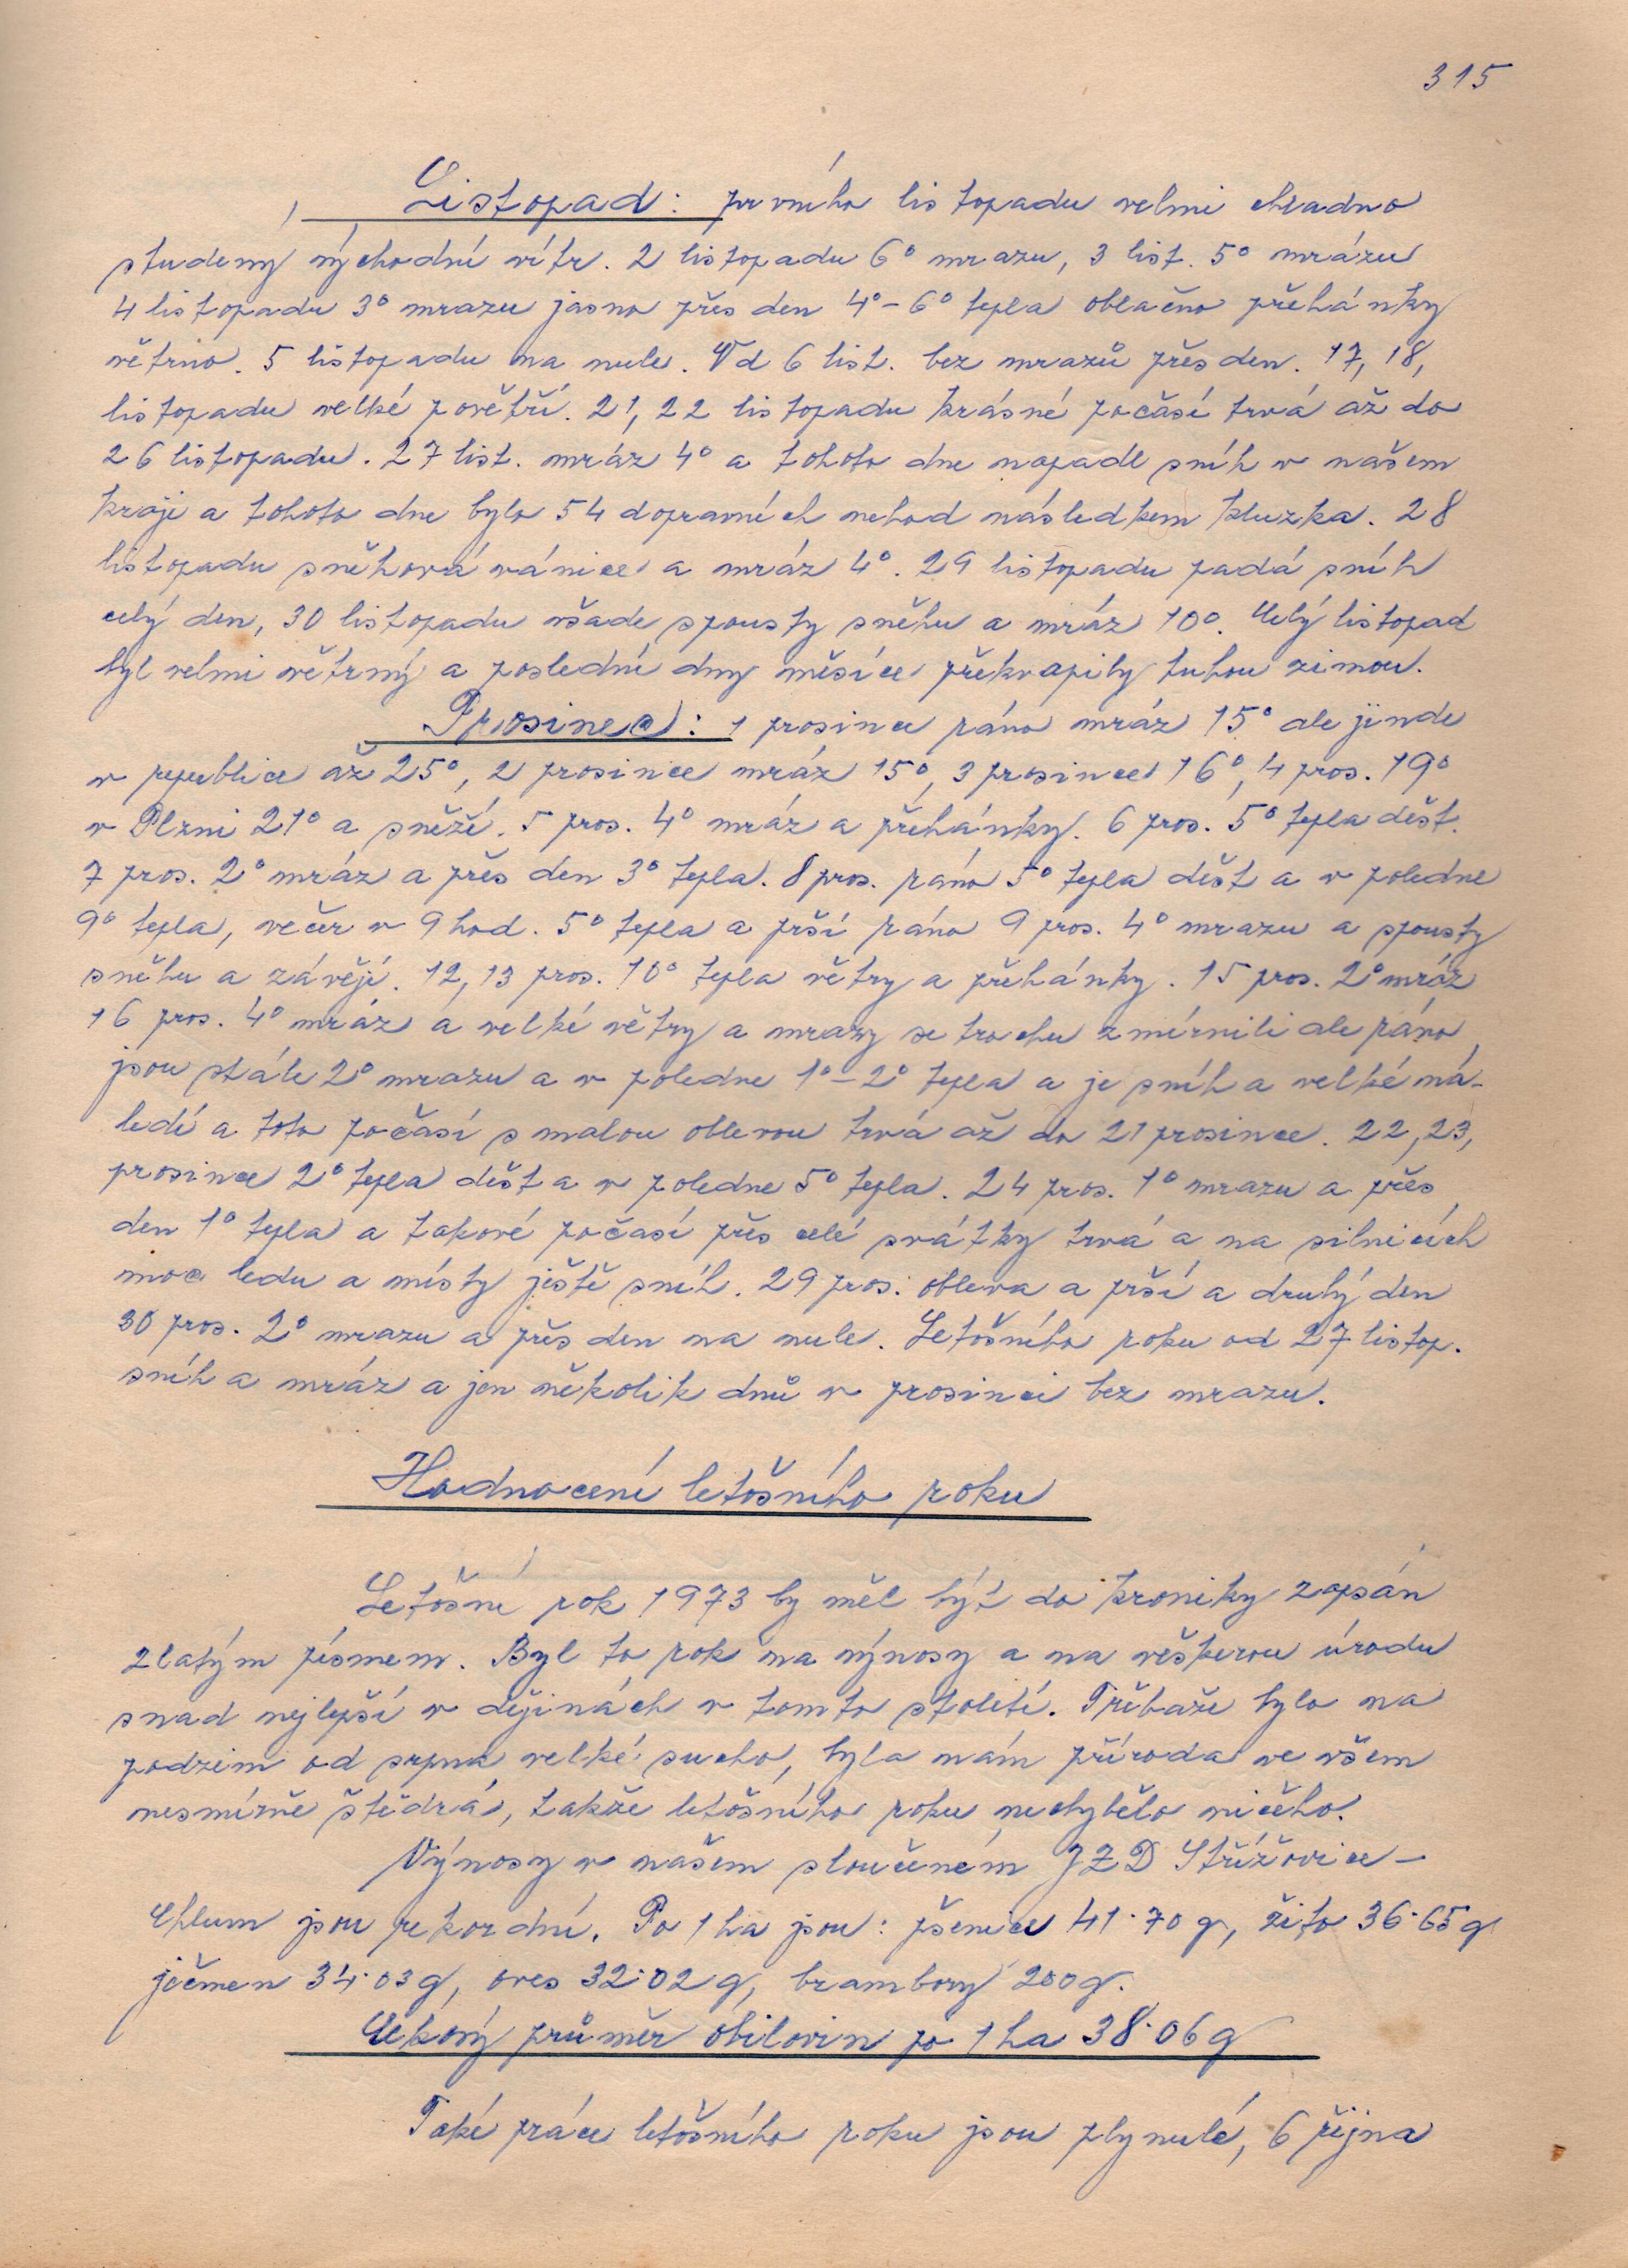 315
Listopad: prvního listopadu velmi chladno
studený východní vítr. 2 listopadu 6° mrazu, 3 list. 5° mrázu
4 listopadu 3° mrazu jasno přes den 4°-6° tepla oblačno přehánky
větrno. 5 listopadu na nule. Od 6 list. bez mrazů přes den. 17, 18,
listopadu velké povětří. 21, 22 listopadu krásné počásí trvá až do
26 listopadu. 27 list. mráz 4° a tohoto dne napadl sníh v našem
kraji a tohoto dne bylo 54 dopravních nehod následkem kluzka. 28
listopadu sněhová vánice a mráz 4°. 29 listopadu padá sníh
celý den, 30 listopadu všade spousty sněhu a mráz 10°. Celý listopad
byl velmi větrný a poslední dny měsíce překvapily tuhou zimou.
Prosinec: 1 prosince ráno mráz 15° ale jinde
v republice až 25°, 2 prosince mráz 15°, 3 prosince 16°, 4 pros. 19°
v Plzni 21° a sněží. 5 pros. 4° mráz a přehánky. 6 pros. 5° tepla déšt.
7 pros. 2° mráz a přes den 3° tepla. 8 pros. ráno 5° tepla déšt a v poledne
9° tepla, večer v 9 hod. 5° tepla a prší ráno 9 pros. 4° mrazu a spousty
sněhu a závějí. 12, 13 pros. 10° tepla větry a přehánky. 15 pros. 2° mráz
16 pros. 4° mráz a velké větry a mrazy se trochu zmírnili ale ráno
jsou stále 2° mrazu a v poledne 1°-2° tepla a je sníh a velké ná-
ledí a toto počasí s malou oblevou trvá až do 21 prosince. 22, 23,
prosince 2° tepla déšt a v poledne 5° tepla. 24 pros. 1° mrazu a přes
den 1° tepla a takové počasí přes celé svátky trvá a na silnicích
moc ledu a místy ještě sníh. 29 pros. obleva a prší a druhý den
30 pros. 2° mrazu a přes den na nule. Letošního roku od 27 listop.
sníh a mráz a jen několik dnů v prosinci bez mrazu.
Hodnocení letošního roku
Letošní rok 1973 by měl být do kroniky zapsán
zlatým písmem. Byl to rok na výnosy a na veškerou úrodu
snad nejlepší v dějinách v tomto století. Třebaže bylo na
podzim od srpna velké sucho, byla nám příroda ve všem
nesmírně štědrá, takže letošního roku nechybělo ničeho.
Výnosy v našem sloučeném JZD Střížovice-
Chlum jsou rekordní. Po 1 ha jsou: pšenice 41·70 q, žito 36·65 q
ječmen 34·03 q, oves 32·02 q, brambory 200 q.
Celkový průměr obilovin po 1 ha 38·06 q
Také práce letošního roku jsou plynulé, 6 října